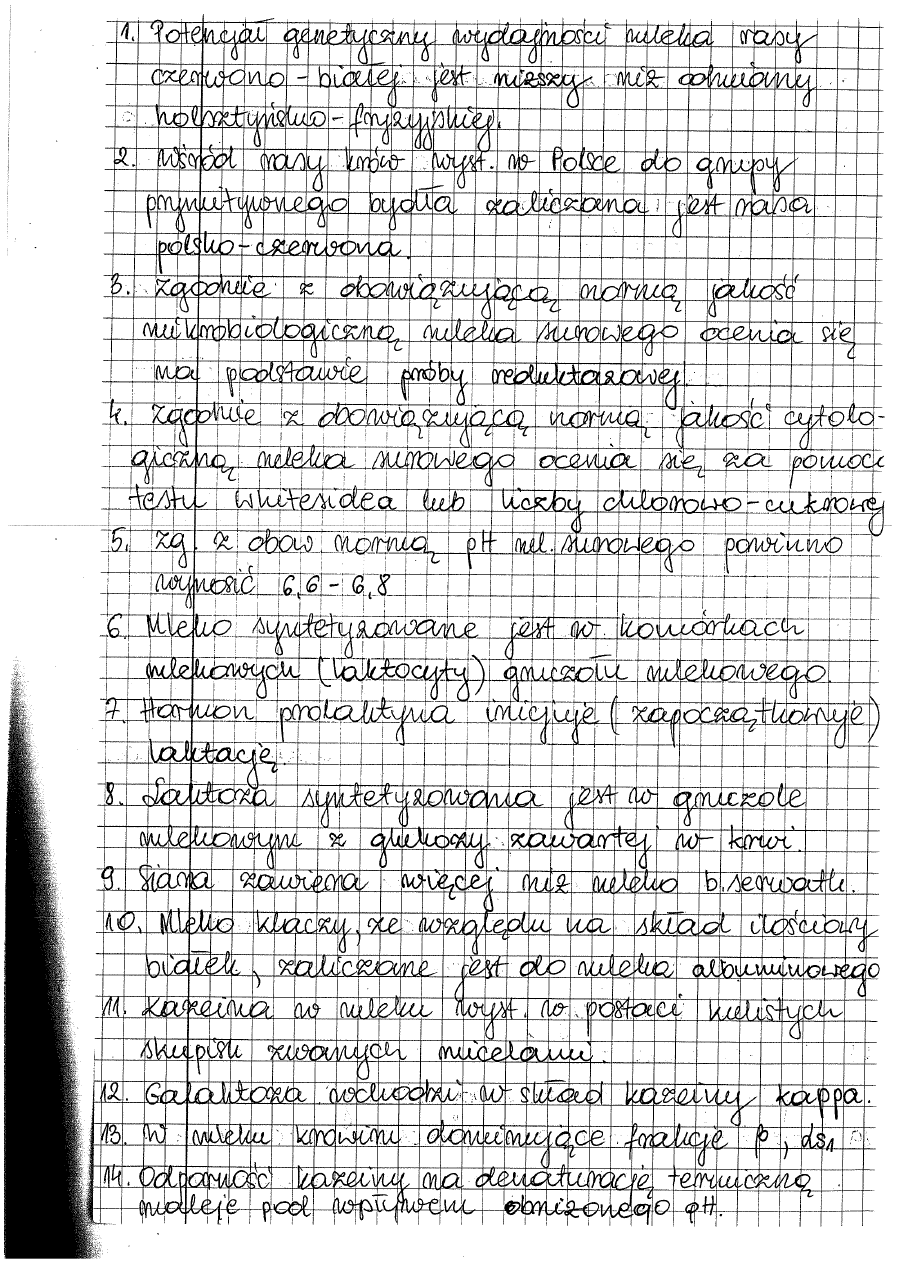 1. Potencjał genetyczny wydajności mleka rasy
czerwono-białej jest niższy niż odmiany
holsztyńsko-fryzyjskiej.
2. Wśród rasy krów wyst. w Polsce do grupy
prymitywnego bydła zaliczana jest rasa
polsko-czerwona.
3. Zgodnie z obowiązującą normą jakość
mikrobiologiczną mleka surowego ocenia się
na podstawie próby reduktazowej.
4. Zgodnie z obowiązującą normą jakość cytolo-
giczną mleka surowego ocenia się za pomocą
testu whitesidea lub liczby chlorowo-cukrowej
5. Zg. z obow normą pH ml. surowego powinno
wynosić 6,6 - 6,8
6. Mleko syntetyzowane jest w komórkach
mlekowych (laktocyty) gruczołu mlekowego.
7. Hormon prolaktyna inicjuje (zapoczątkowuje)
laktację.
8. Laktoza syntetyzowana jest w gruczole
mlekowym z glukozy zawartej w krwi.
9. Siara zawiera więcej niż mleko b. serwatk.
10. Mleko klaczy, ze względu na skład ilościowy
białek, zaliczane jest do mleka albuminowego
11. Kazeina w mleku wyst. w postaci kulistych
skupisk zwanych micelami.
12. Galaktoza wchodzi w skład kazeiny kappa.
13. W mleku krowim dominujące frakcje β, αs1
14. Odporność kazeiny na denaturację termiczną
maleje pod wpływem obniżonego pH.